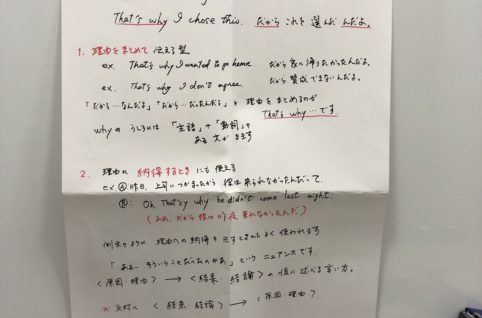 That's why I chose this. だから これを 選んだ んだよ。
1. 理由をまとめて 伝える型
ex. That's why I wanted to go home. だから 家に帰りたかったんだよ。
ex. That's why I don't agree. だから 賛成できないんだよ。
「だから…なんだよ」「だから…だったんだよ」と 理由をまとめるのが
That's why … です。
why の うしろには 「主語」+「動詞」の
ある 文が きます
2. 理由に 納得するとき にも 使える
ex Ⓐ 昨日、上司につかまったから 彼は来られなかったんだって。
Ⓑ: Oh. That's why he didn't come last night.
(ああ、だから 彼は昨夜 来れなかったんだ)
例文のように 理由への納得を 示すときにも よく 使われます
「ああー そういうことだったのかあ」という ニュアンスです。
〈原因 理由〉 → 〈結果・結論〉の 順に 述べる 言い方。
※ 反対に 〈結果 結論〉 → 〈原因 理由〉